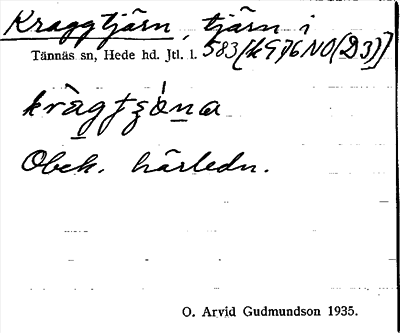 Kraggtjärn, tjärn i
Tännäs sn, Hede hd. Jtl. l. 583 [k 976 NO (D3)]
Obek. härledn.
O. Arvid Gudmundson 1935.